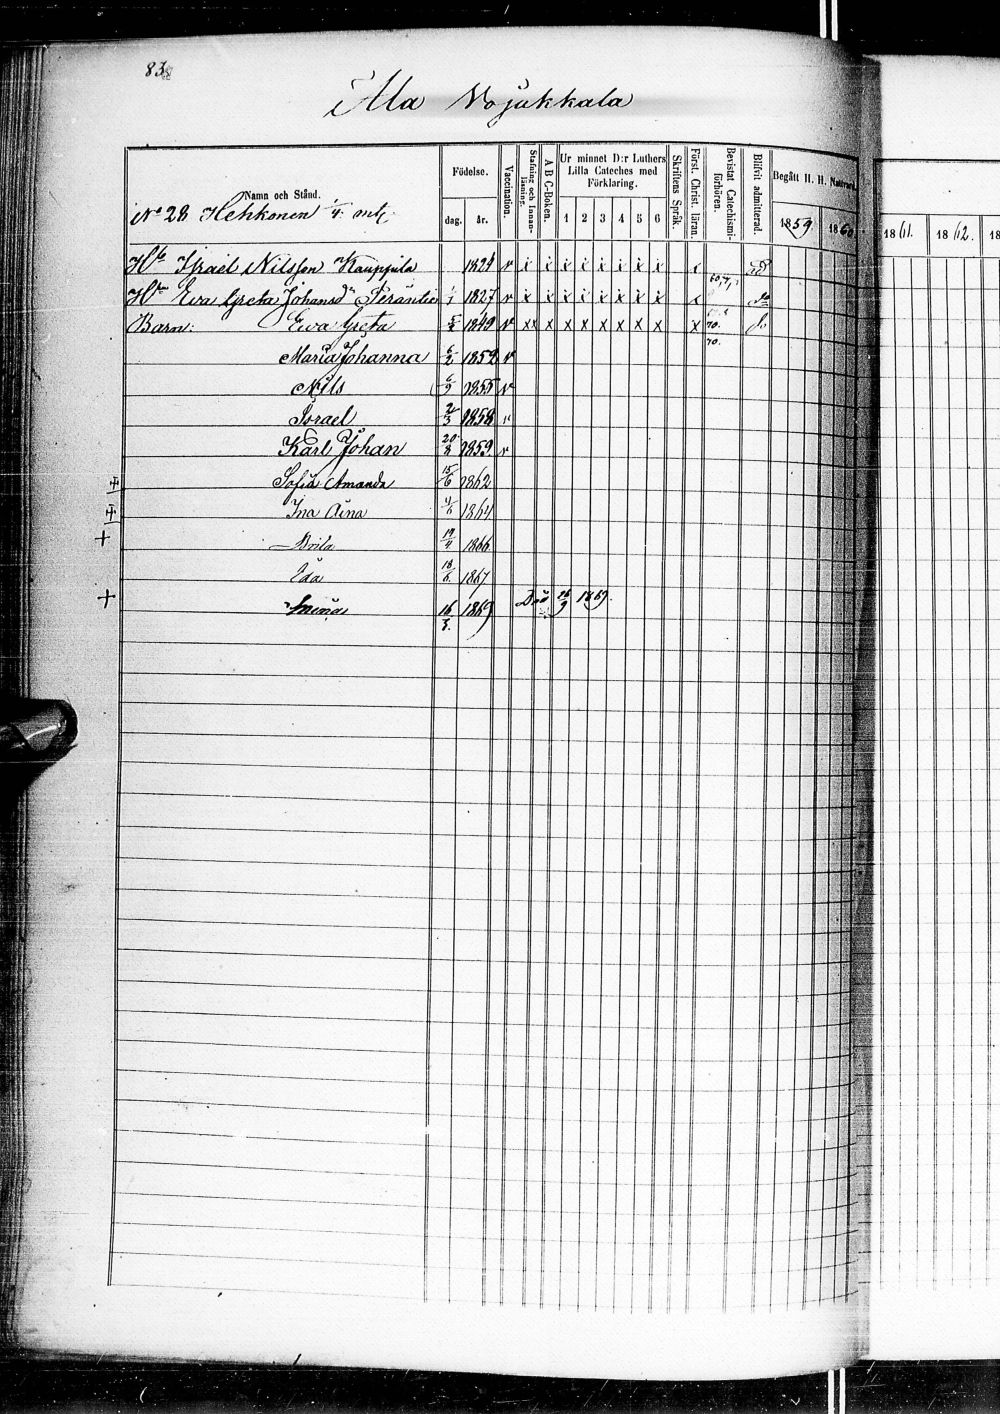 83
Ala Wojakkala
Namn och Stånd.
Födelse.
dag. år.
Vaccination.
Stafning och Innanläsning.
A B C-Boken.
Ur minnet D:r Luthers Lilla Cateches med Förklaring.
1 2 3 4 5 6
Skriftens Språk.
Först. Christ. läran.
Bevistat Catechismiförhören.
Blifvit admitterad
Begått H. H. Nattvard.
1859. 1860. 1861. 1862. 18
No 28 Hehkonen 1/4 mtl.
Israel Nilsson Kauppila 1824 v
Eva Greta Johansd:r Peräntie 1/1 1827 v
Barn: Eva Greta 1849 v xx x x x x x x x x 70.
Maria Johanna 6/2 1852 v 70.
Nils 6/9 1855 v
Israel 2/3 1858 v
Karl Johan 20/8 1859 v
Sofia Amanda 15/6 1862
Ina Aina 1864
+ Brita 19/4 1866
Ida 18/6 1867
+ Miina 16/3. 1869 Död 16/9 1869.